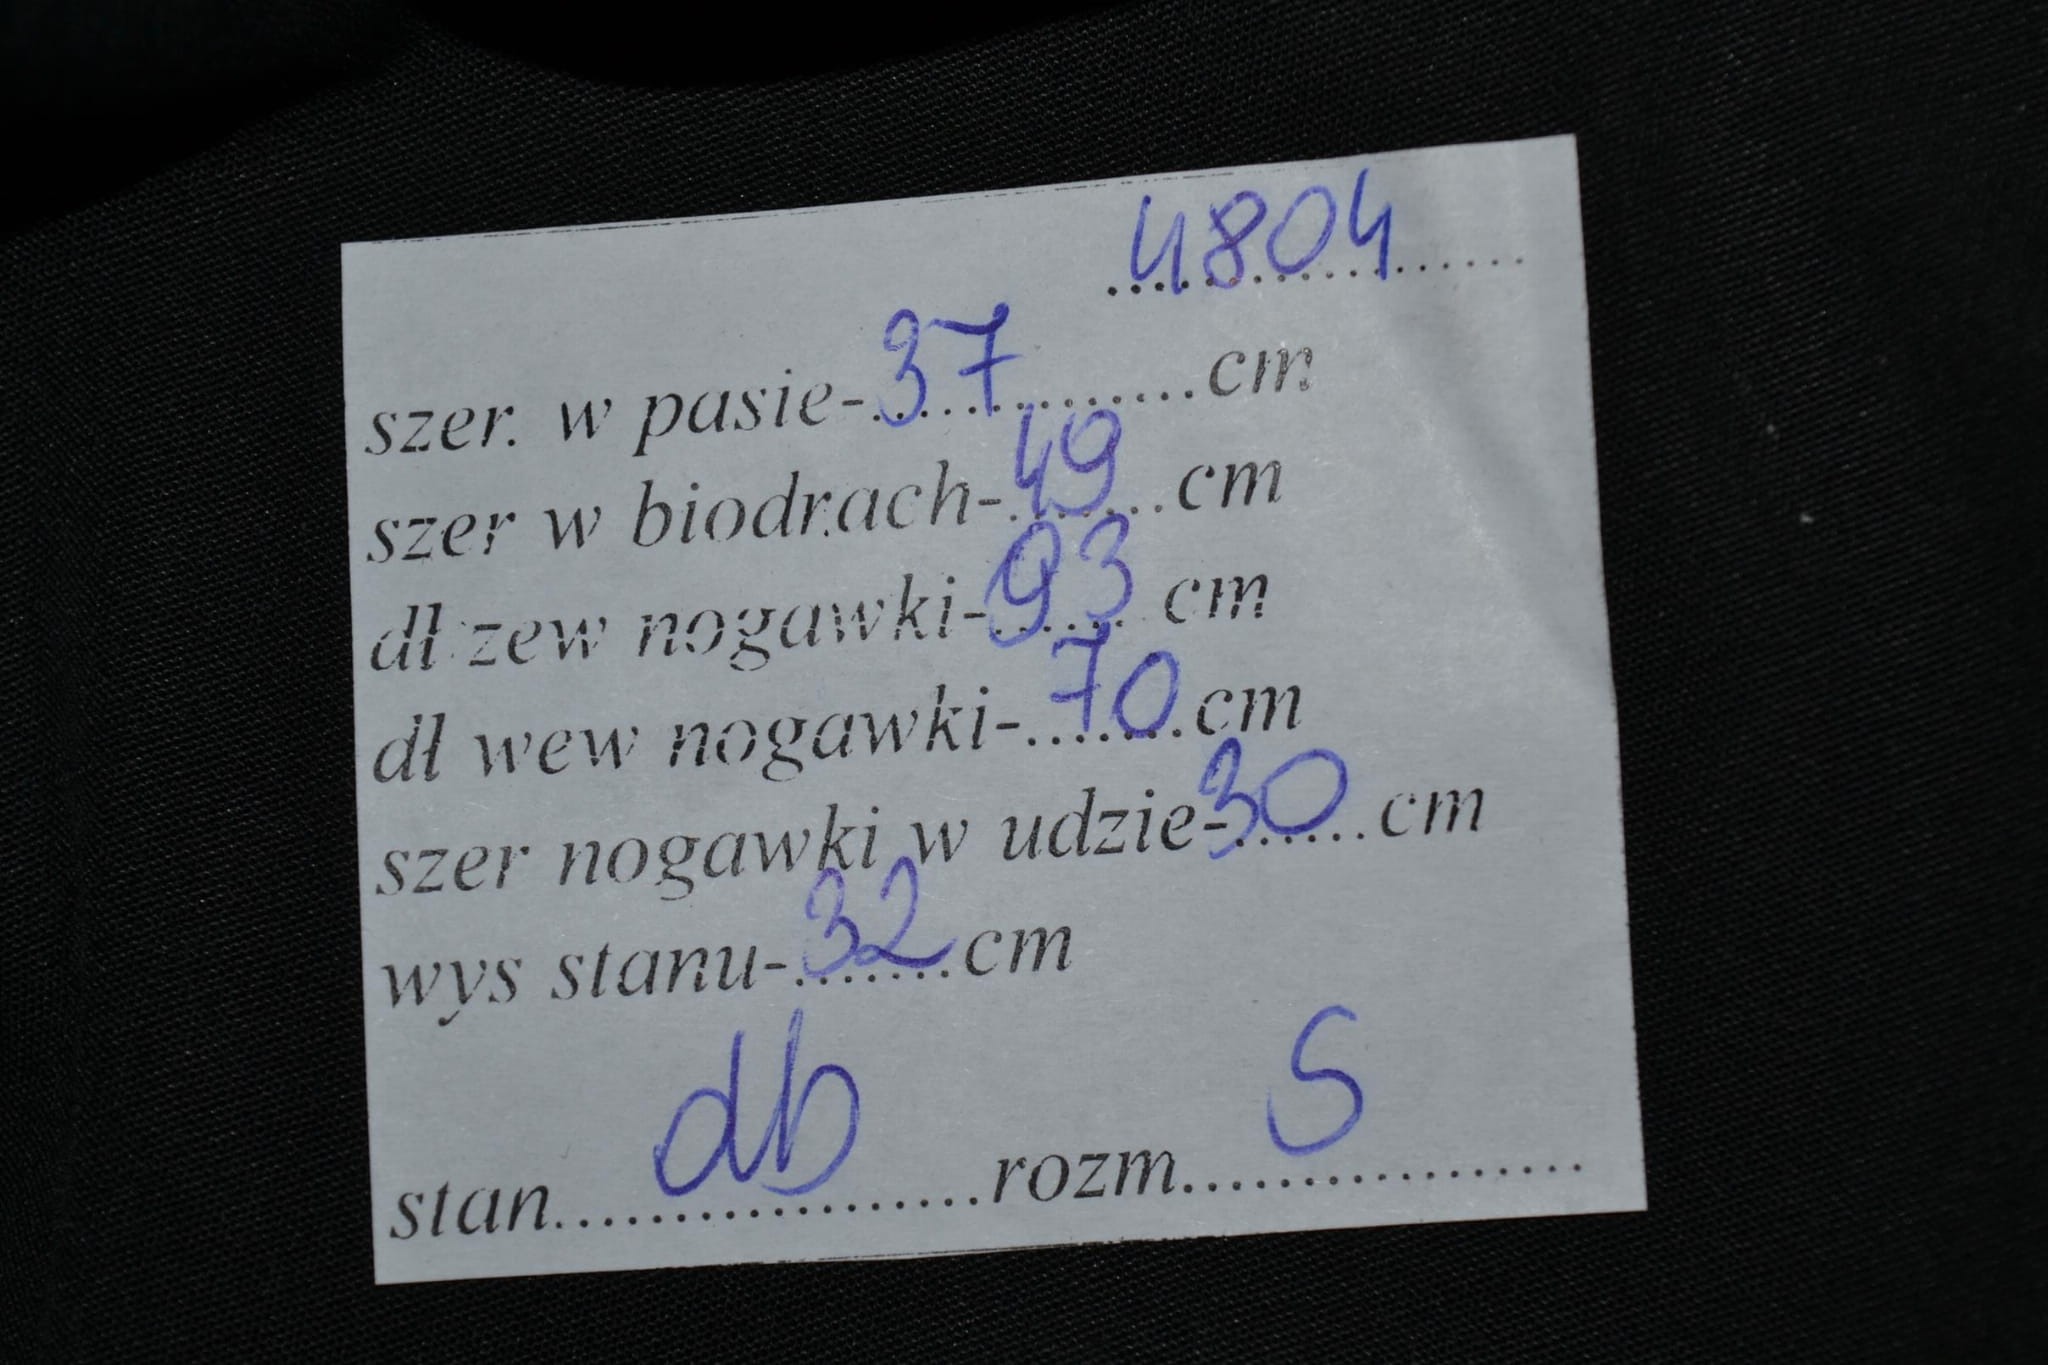 4804
szer. w pasie-37...............cm
szer w biodrach-49.......cm
dł zew nogawki-93....... cm
dł wew nogawki-70.......cm
szer nogawki w udzie-30......cm
wys stanu-32.......cm
stan db rozm S